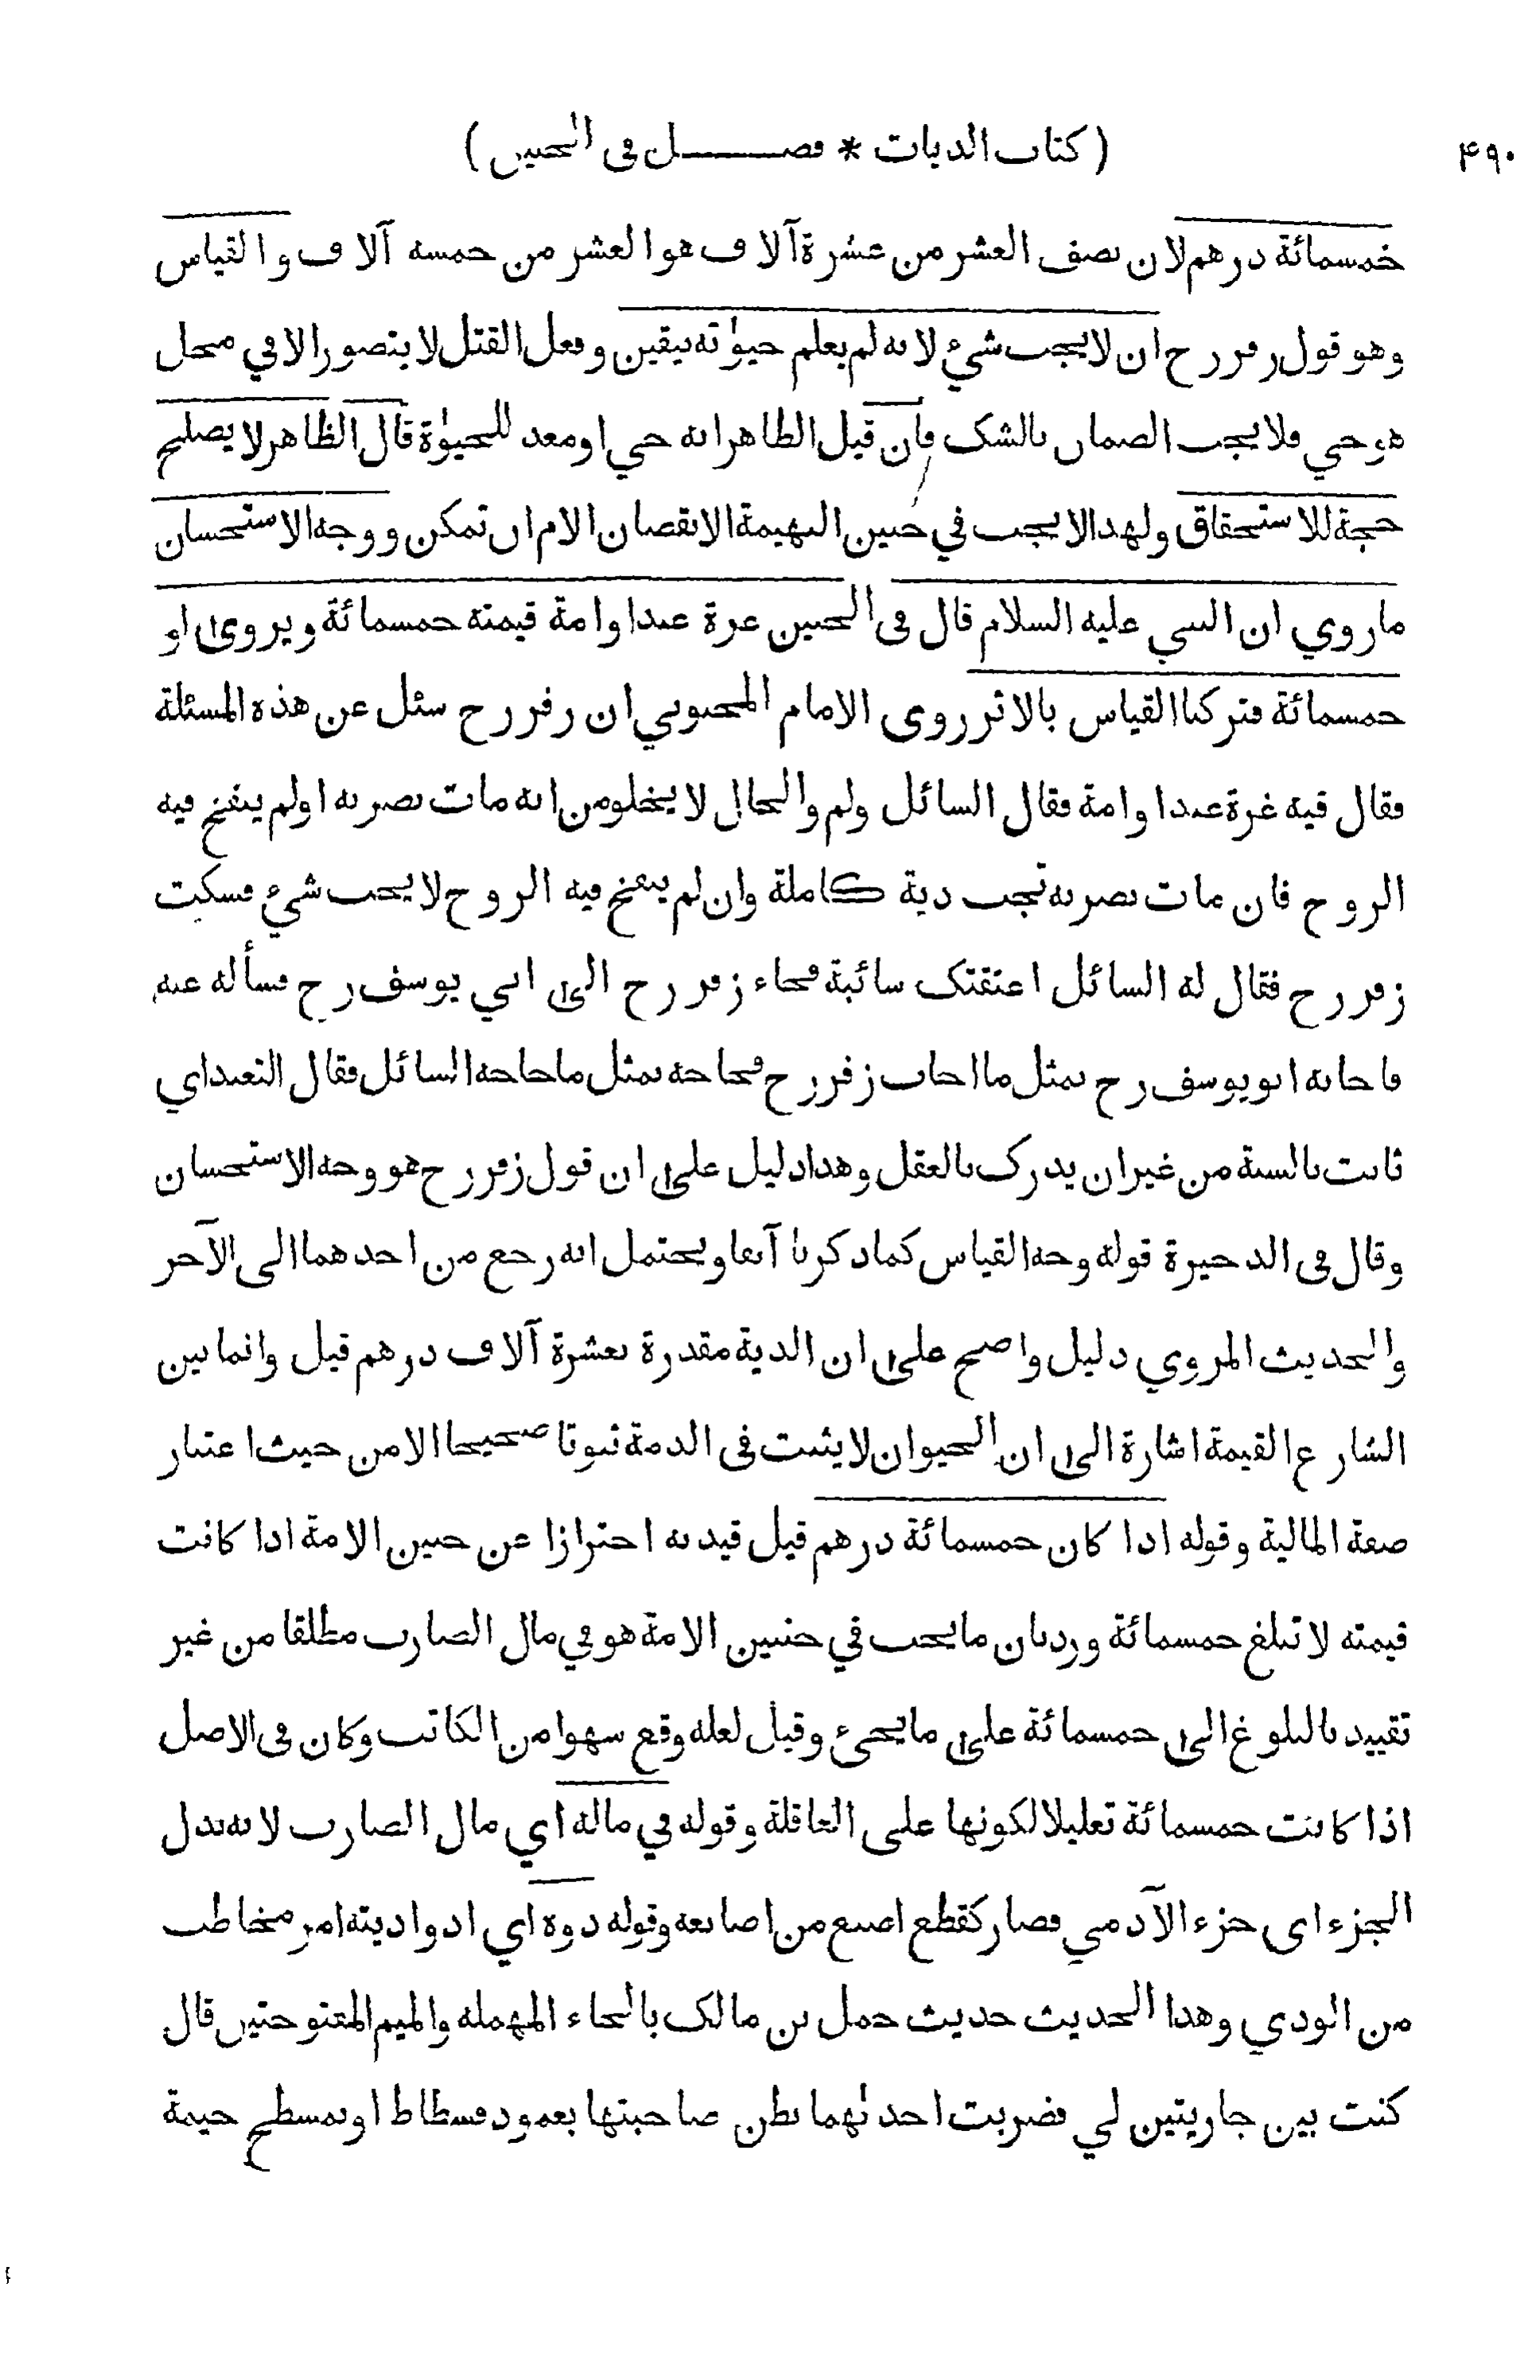 ۴۹۰
( كتاب الديات * فصـــــل فى الجنين )
خمسمائة درهم لان نصف العشر من عشرة آلاف هو العشر من خمسة آلاف والقياس
وهو قول زفر رح ان لا يجب شيء لانه لم يعلم حيوته بيقين وفعل القتل لا يتصور الا في محل
هو حي فلا يجب الضمان بالشك فان قيل الظاهر انه حي او معد للحيوة قال الظاهر لا يصلح
حجة للاستحقاق ولهذا لا يجب في جنين البهيمة الا نقصان الام ان تمكن ووجه الاستحسان
ما روي ان النبي عليه السلام قال فى الجنين غرة عبد او امة قيمته خمسمائة ويروى او
خمسمائة فتركنا القياس بالاثر روى الامام المحبوبي ان زفر رح سئل عن هذه المسئلة
فقال فيه غرة عبد او امة فقال السائل ولم والحال لا يخلو من انه مات بضربه او لم ينفخ فيه
الروح فان مات بضربه تجب دية كاملة وان لم ينفخ فيه الروح لا يجب شيء فسكت
زفر رح فقال له السائل اعتقتك سائبة فجاء زفر رح الى ابي يوسف رح فسأله عنه
فاجابه ابو يوسف رح بمثل ما اجاب زفر رح فحاجه بمثل ما حاجه السائل فقال التعبد اي
ثابت بالسنة من غير ان يدرك بالعقل وهذا دليل على ان قول زفر رح هو وجه الاستحسان
وقال فى الذخيرة قوله وجه القياس كما ذكرنا آنفا ويحتمل انه رجع من احدهما الى الآخر
والحديث المروي دليل واضح على ان الدية مقدرة بعشرة آلاف درهم قيل وانما بين
الشارع القيمة اشارة الى ان الحيوان لا يثبت فى الذمة ثبوتا صحيحا الا من حيث اعتبار
صفة المالية وقوله اذا كان خمسمائة درهم قيل قيد به احترازا عن جنين الامة اذا كانت
قيمته لا تبلغ خمسمائة ورد بان ما يجب في جنين الامة هو في مال الضارب مطلقا من غير
تقييد بالبلوغ الى خمسمائة على ما يجيء وقيل لعله وقع سهوا من الكاتب وكان فى الاصل
اذا كانت خمسمائة تعليلا لكونها على العاقلة وقوله في ماله اي مال الضارب لانه بدل
الجزء اى جزء الآدمي فصار كقطع اصبع من اصابعه وقوله دوه اي ادوا ديته امر مخاطب
من الودي وهذا الحديث حديث حمل بن مالك بالحاء المهملة والميم المفتوحتين قال
كنت بين جاريتين لي فضربت احدىهما بطن صاحبتها بعمود فسطاط او بمسطح خيمة